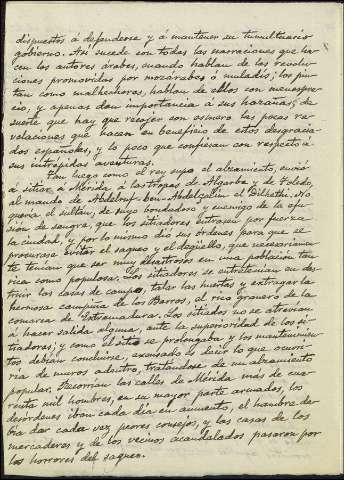 dispuestos á defenderse y á mantener su tumultuario
gobierno. Asi sucede con todas las narraciones que ha-
cen los autores árabes, cuando hablan de las revolu-
ciones promovidas por mozárabes ó muladís; los pin-
tan como malhechores, hablan de ellos con menospre-
cio, y apenas dan importancia á sus hazañas; de
suerte que hay que recojer con esmero las pocas re-
velaciones que hacen en beneficio de estos desgracia-
dos españoles, y lo poco que confiesan con respecto á
sus intrépidas aventuras.
Tan luego como el rey supo el alzamiento, envió
á sitiar á Mérida, á las tropas de Algarbe y de Toledo,
al mando de Abdelruf-ben-Abdelzalem el Dilhethi. No
queria el sultan, de suyo bondadoso y enemigo de la efu-
sion de sangre, que los sitiadores entrasen por fuerza
la ciudad, y por lo mismo dió sus órdenes para que se
procurase evitar el saqueo y el degüello, que necesariamen-
te tenian que ser muy desastrosos en una poblacion tan
rica como populosa. Los sitiadores se entretenian en des-
truir las casas de campo, talar las huertas y extragar la
hermosa campiña de los Barros, el rico granero de la
comarca de Extremadura. Los sitiados no se atrevian
á hacer salida alguna, ante la superioridad de los si-
tiadores; y como el sitio se prolongaba y los mantenimien-
tos debian concluirse, excusado es decir lo que ocurri-
ría de muros adentro, tratándose de un alzamiento
popular. Recorrian las calles de Mérida más de cua-
renta mil hombres, en su mayor parte armados, los
desórdenes iban cada dia en aumento, el hambre de-
bia dar cada vez peores consejos, y las casas de los
mercaderes y de los vecinos acaudalados pasaron por
los horrores del saqueo.